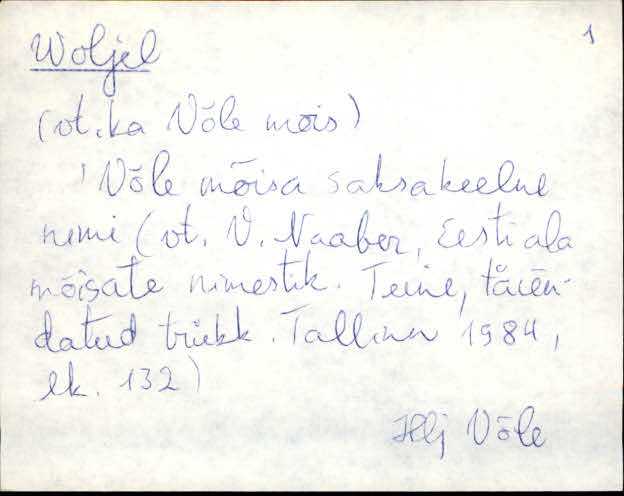 Woljel 1
(vt. ka Võle mõis)
' Võle mõisa saksakeelne
nimi (vt. V. Naaber, Eesti ala
mõisate nimestik. Teine, täien-
datud trükk. Tallinn 1984,
lk. 132)
Hlj Võle